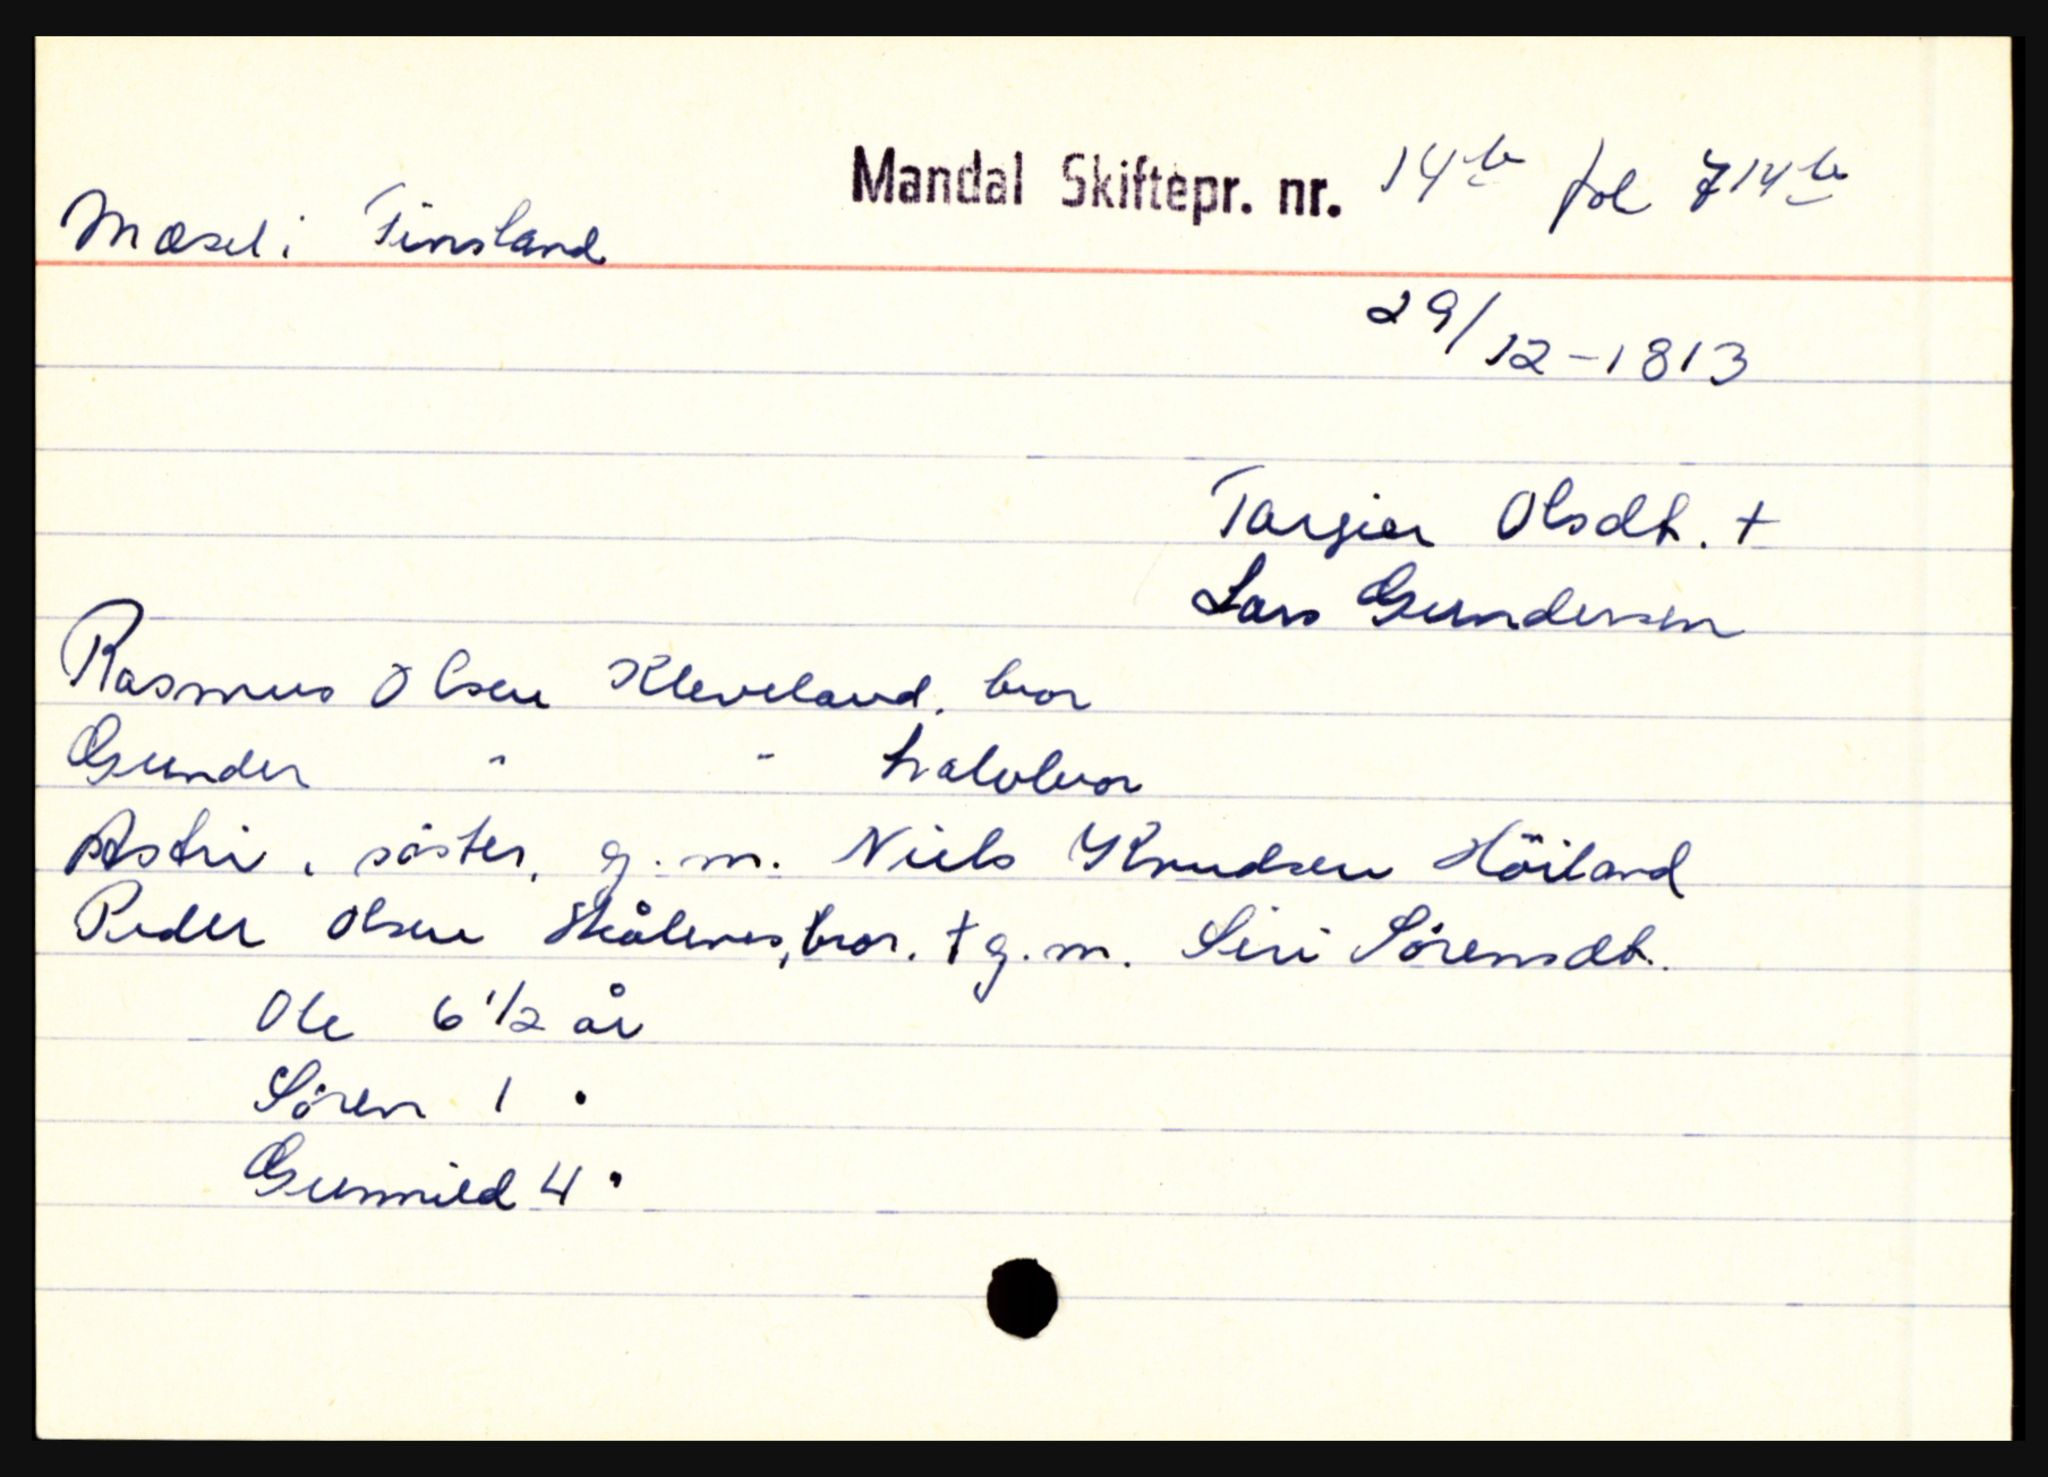 Mandal Skiftepr. nr. 14b fol 714b
Mæsel i Finsland
29/12-1813
Targier Olsdt. +
Lars Gundersen
Rasmus Olsen Kleveland. bror
Gunder " " halvbror
Astri, söster, g.m. Niels Knudsen Höiland
Peder Olsen Skålevig, bror. † g.m. Siri Sörensdt.
Ole 6 1/2 år
Sören 1 "
Gunnild 4 "